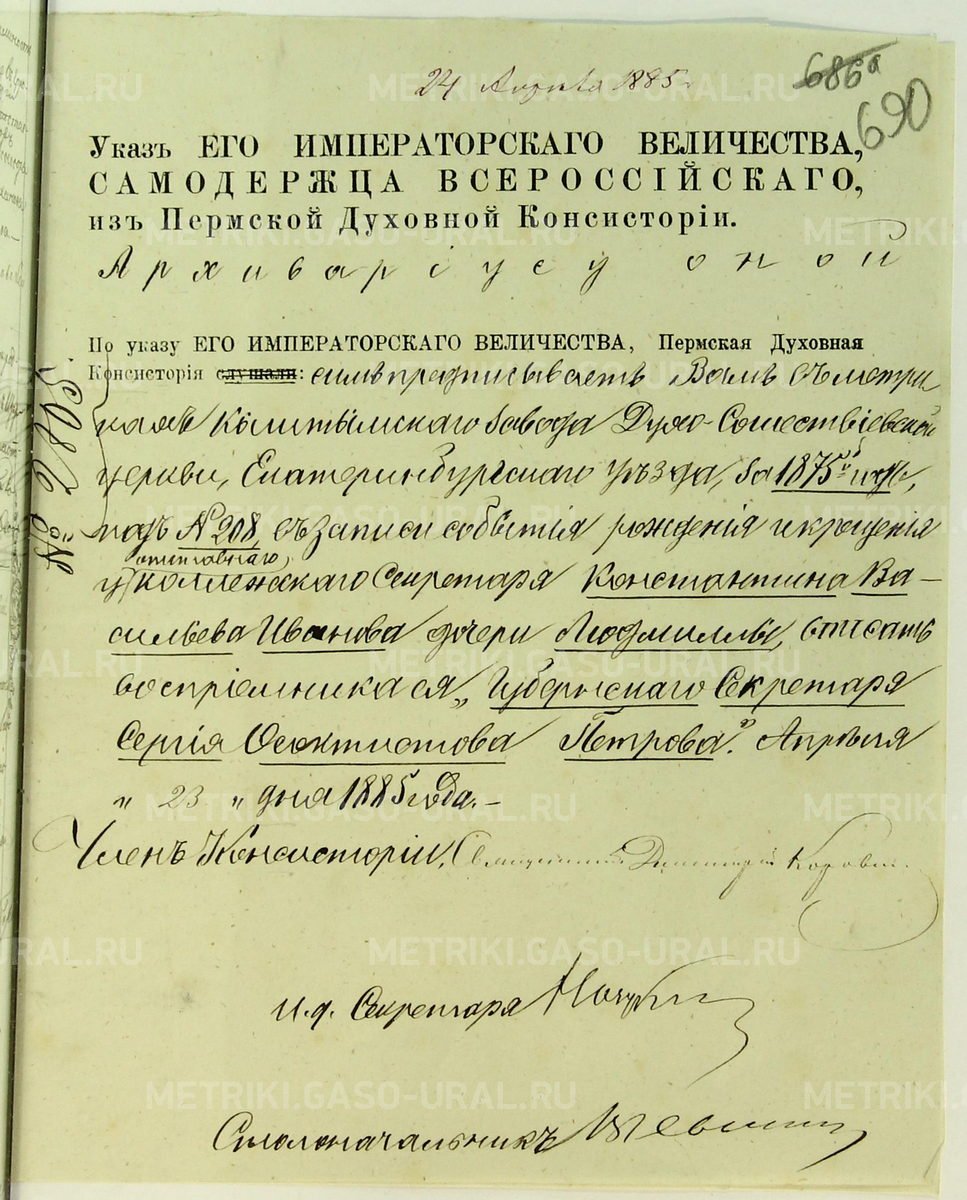 686а
690
24 Апрѣля 1885
Указъ ЕГО ИМПЕРАТОРСКАГО ВЕЛИЧЕСТВА,
САМОДЕРЖЦА ВСЕРОССІЙСКАГО,
изъ Пермской Духовной Консисторіи.
Архиваріусу оной
По указу ЕГО ИМПЕРАТОРСКАГО ВЕЛИЧЕСТВА, Пермская Духовная
Консисторія слушали: симъ предписываетъ Вамъ въ метри
камъ Кыштымскаго завода Духо-Сошествіевской
церкви, Екатеринбургскаго уѣзда, за 1875й годъ,
подъ № 208, въ записи событія рожденія и крещенія
отставнаго
у коллежскаго Секретаря Константина Ва-
сильева Иванова дочери Людмиллы, вписать
воспріемника ея „Губернскаго Секретаря
Сергія Ѳеоктистова Петрова." Апрѣля
„ 23 „ дня 1885 года.-
Членъ Консисторіи, Священникъ Димитрій
И.д. Секретаря
Столоначальникъ
METRIKI.GASO-URAL.RU